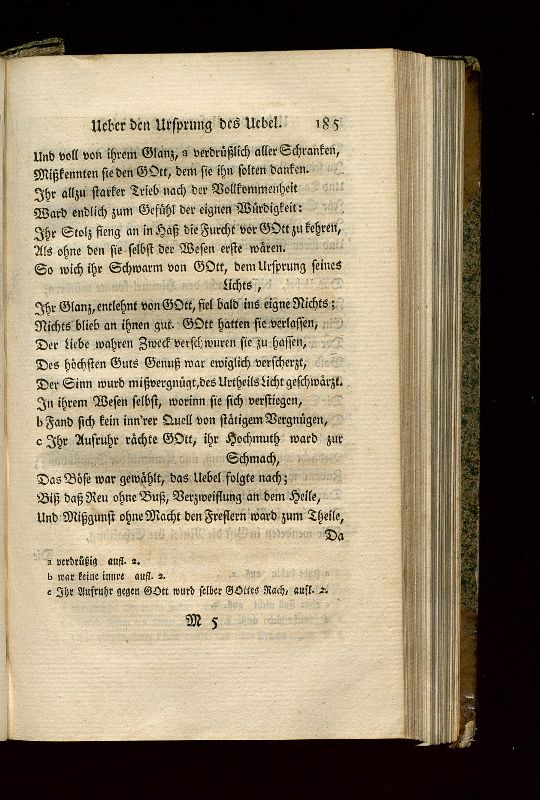 Ueber den Ursprung des Uebel. 185
Und voll von ihrem Glanz, a verdrüßlich aller Schranken,
Mißkennten sie den GOtt, dem sie ihn solten danken.
Ihr allzu starker Trieb nach der Vollkommenheit
Ward endlich zum Gefühl der eignen Würdigkeit:
Ihr Stolz fieng an in Haß die Furcht vor GOtt zu kehren,
Als ohne den sie selbst der Wesen erste wären.
So wich ihr Schwarm von GOtt, dem Ursprung seines
Lichts,
Ihr Glanz, entlehnt von GOtt, fiel bald ins eigne Nichts;
Nichts blieb an ihnen gut. GOtt hatten sie verlassen,
Der Liebe wahren Zweck verschwuren sie zu hassen,
Des höchsten Guts Genuß war ewiglich verscherzt,
Der Sinn wurd mißvergnügt, des Urtheils Licht geschwärzt.
In ihrem Wesen selbst, worinn sie sich verstiegen,
b Fand sich kein inn'rer Quell von stätigem Vergnügen,
c Ihr Aufruhr rächte GOtt, ihr Hochmuth ward zur
Schmach,
Das Böse war gewählt, das Uebel folgte nach;
Biß daß Reu ohne Buß, Verzweiflung an dem Heile,
Und Mißgunst ohne Macht den Freflern ward zum Theile,
Da
a verdrüßig aufl. 2.
b war keine innre aufl. 2.
c Ihr Aufruhr gegen GOtt wurd selber GOttes Rach, aufl. 2.
M 5